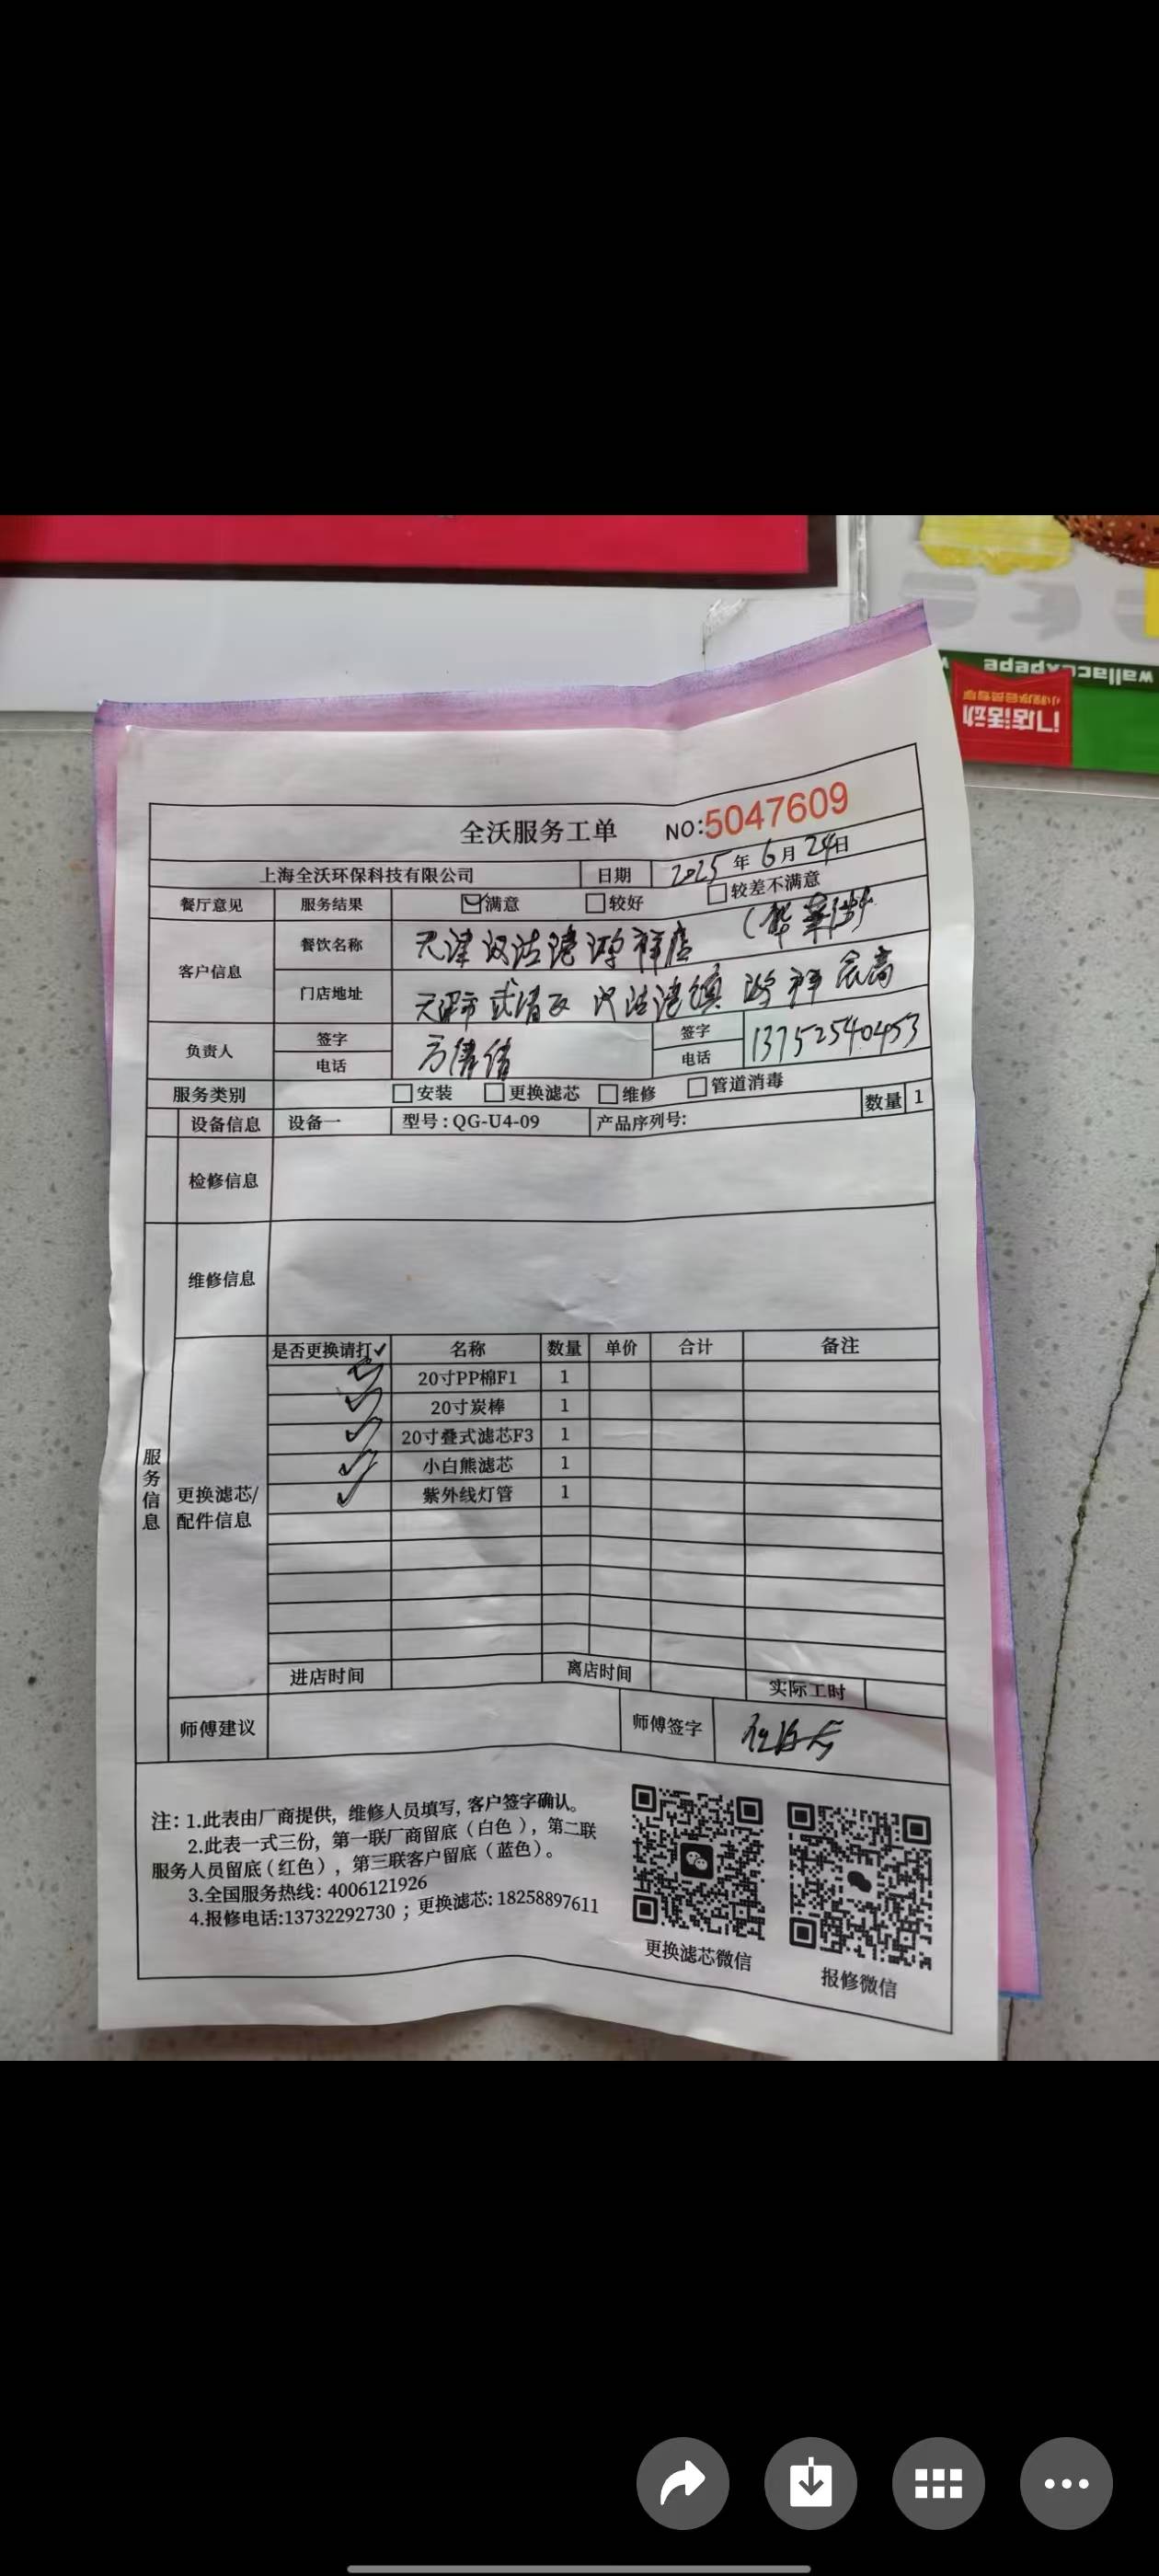 wallace
门店活动
全沃服务工单 NO:5047609
上海全沃环保科技有限公司 日期 2025年6月24日
餐厅意见 服务结果 满意 较好 较差不满意
客户信息
餐饮名称 天津汊沽港 祥店 (华莱士
门店地址 天津市武清区汊沽港镇
负责人 签字 方倩倩 签字
电话 电话 13752540453
服务类别 安装 更换滤芯 维修 管道消毒
设备信息 设备一 型号:QG-U4-09 产品序列号: 数量 1
检修信息
维修信息
服务信息
更换滤芯/
配件信息
是否更换请打✓ 名称 数量 单价 合计 备注
✓ 20寸PP棉F1 1
✓ 20寸炭棒 1
✓ 20寸叠式滤芯F3 1
✓ 小白熊滤芯 1
✓ 紫外线灯管 1
进店时间 离店时间 实际工时
师傅建议 师傅签字
注:1.此表由厂商提供,维修人员填写,客户签字确认。
2.此表一式三份,第一联厂商留底(白色),第二联
服务人员留底(红色),第三联客户留底(蓝色)。
3.全国服务热线:4006121926
4.报修电话:13732292730;更换滤芯:18258897611
更换滤芯微信
报修微信